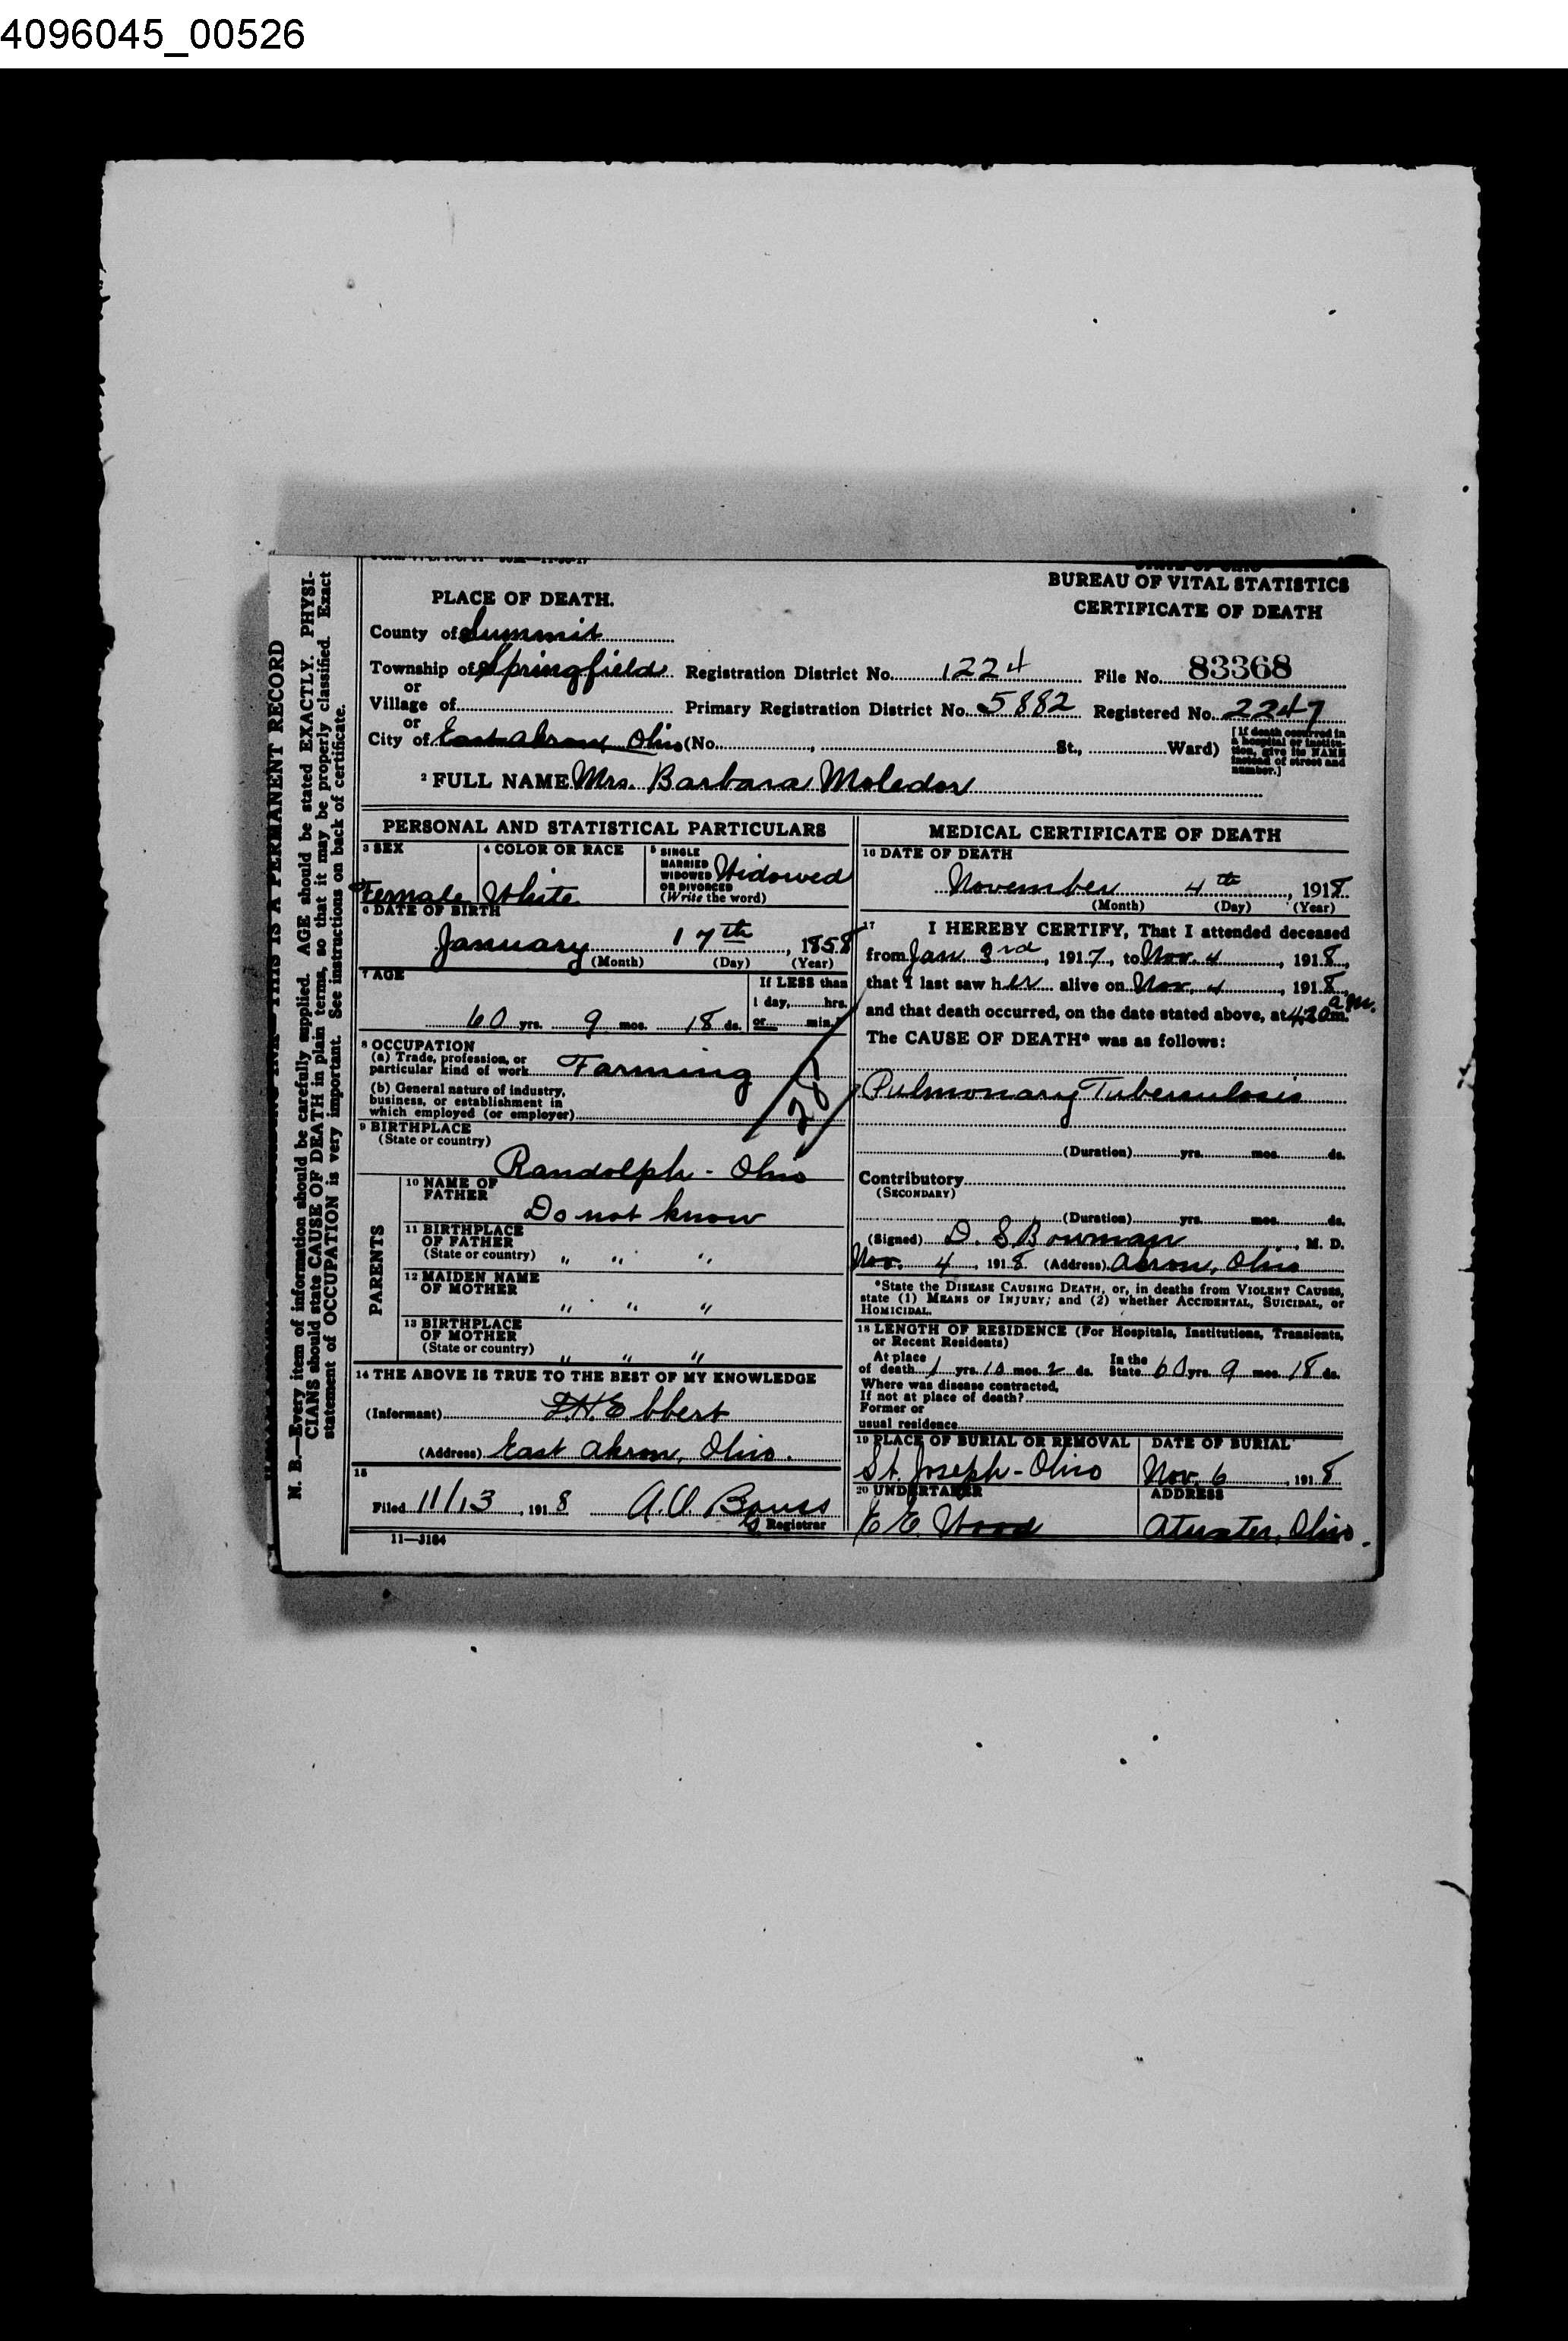 4096045_00526
STATE OF OHIO
BUREAU OF VITAL STATISTICS
CERTIFICATE OF DEATH
PLACE OF DEATH.
County of Summit
Township of Springfield Registration District No. 1224 File No. 83368
or
Village of Primary Registration District No. 5882 Registered No. 2247
or
City of East Akron, Ohio (No. , St., Ward) [If death occurred in a hospital or institution, give its NAME instead of street and number.]
2 FULL NAME Mrs. Barbara Moledor
PERSONAL AND STATISTICAL PARTICULARS
3 SEX
Female
4 COLOR OR RACE
White
5 SINGLE
MARRIED
WIDOWED
OR DIVORCED
(Write the word)
Widowed
6 DATE OF BIRTH
January 17th, 1858
(Month) (Day) (Year)
7 AGE
60 yrs. 9 mos. 18 ds.
If LESS than
1 day, hrs.
or min.?
8 OCCUPATION
(a) Trade, profession, or
particular kind of work Farming
(b) General nature of industry,
business, or establishment in
which employed (or employer)
28
9 BIRTHPLACE
(State or country)
Randolph - Ohio
PARENTS
10 NAME OF
FATHER
Do not know
11 BIRTHPLACE
OF FATHER
(State or country) " " "
12 MAIDEN NAME
OF MOTHER
" " "
13 BIRTHPLACE
OF MOTHER
(State or country) " " "
14 THE ABOVE IS TRUE TO THE BEST OF MY KNOWLEDGE
(Informant) Ebbert
(Address) East Akron, Ohio.
15
Filed 11/13, 1918 A. O.
Registrar
11—3184
MEDICAL CERTIFICATE OF DEATH
16 DATE OF DEATH
November 4th, 1918
(Month) (Day) (Year)
17 I HEREBY CERTIFY, That I attended deceased
from Jan 3rd, 1917, to Nov. 4, 1918,
that I last saw her alive on Nov. 4, 1918,
and that death occurred, on the date stated above, at 4.20 m. a.m.
The CAUSE OF DEATH* was as follows:
Pulmonary Tuberculosis
(Duration) yrs. mos. ds.
Contributory
(SECONDARY)
(Duration) yrs. mos. ds.
(Signed) D. S Bowman, M. D.
Nov. 4, 1918 (Address) Akron, Ohio
*State the DISEASE CAUSING DEATH, or, in deaths from VIOLENT CAUSES,
state (1) MEANS OF INJURY; and (2) whether ACCIDENTAL, SUICIDAL, or
HOMICIDAL.
18 LENGTH OF RESIDENCE (For Hospitals, Institutions, Transients,
or Recent Residents)
At place
of death 1 yrs. 10 mos. 2 ds. In the State 60 yrs. 9 mos. 18 ds.
Where was disease contracted,
If not at place of death?
Former or
usual residence
19 PLACE OF BURIAL OR REMOVAL
St. Joseph - Ohio
DATE OF BURIAL
Nov. 6, 1918
20 UNDERTAKER
E E. Wood
ADDRESS
Atwater, Ohio.
THIS IS A PERMANENT RECORD
N. B.—Every item of information should be carefully supplied. AGE should be stated EXACTLY. PHYSI-
CIANS should state CAUSE OF DEATH in plain terms, so that it may be properly classified. Exact
statement of OCCUPATION is very important. See instructions on back of certificate.